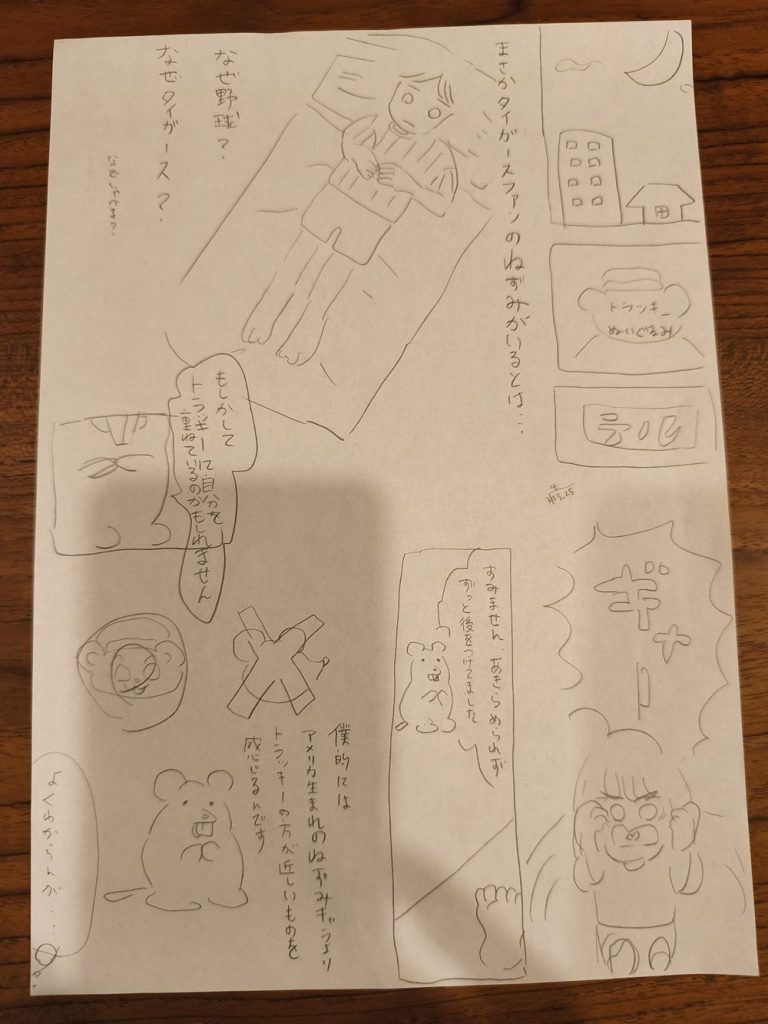 トラッキー
ぬいぐるみ
まさかタイガースファンのねずみがいるとは…
なぜ野球?
なぜタイガース?
なぜしゃべる?
ギャー
すみません、あきらめられず
ずっと後をつけてました
もしかして
トラッキーに自分を
重ねているのかもしれません
僕的には
アメリカ生まれのねずみキャラより
トラッキーの方が近しいものを
感じるんです
よくわからんが…